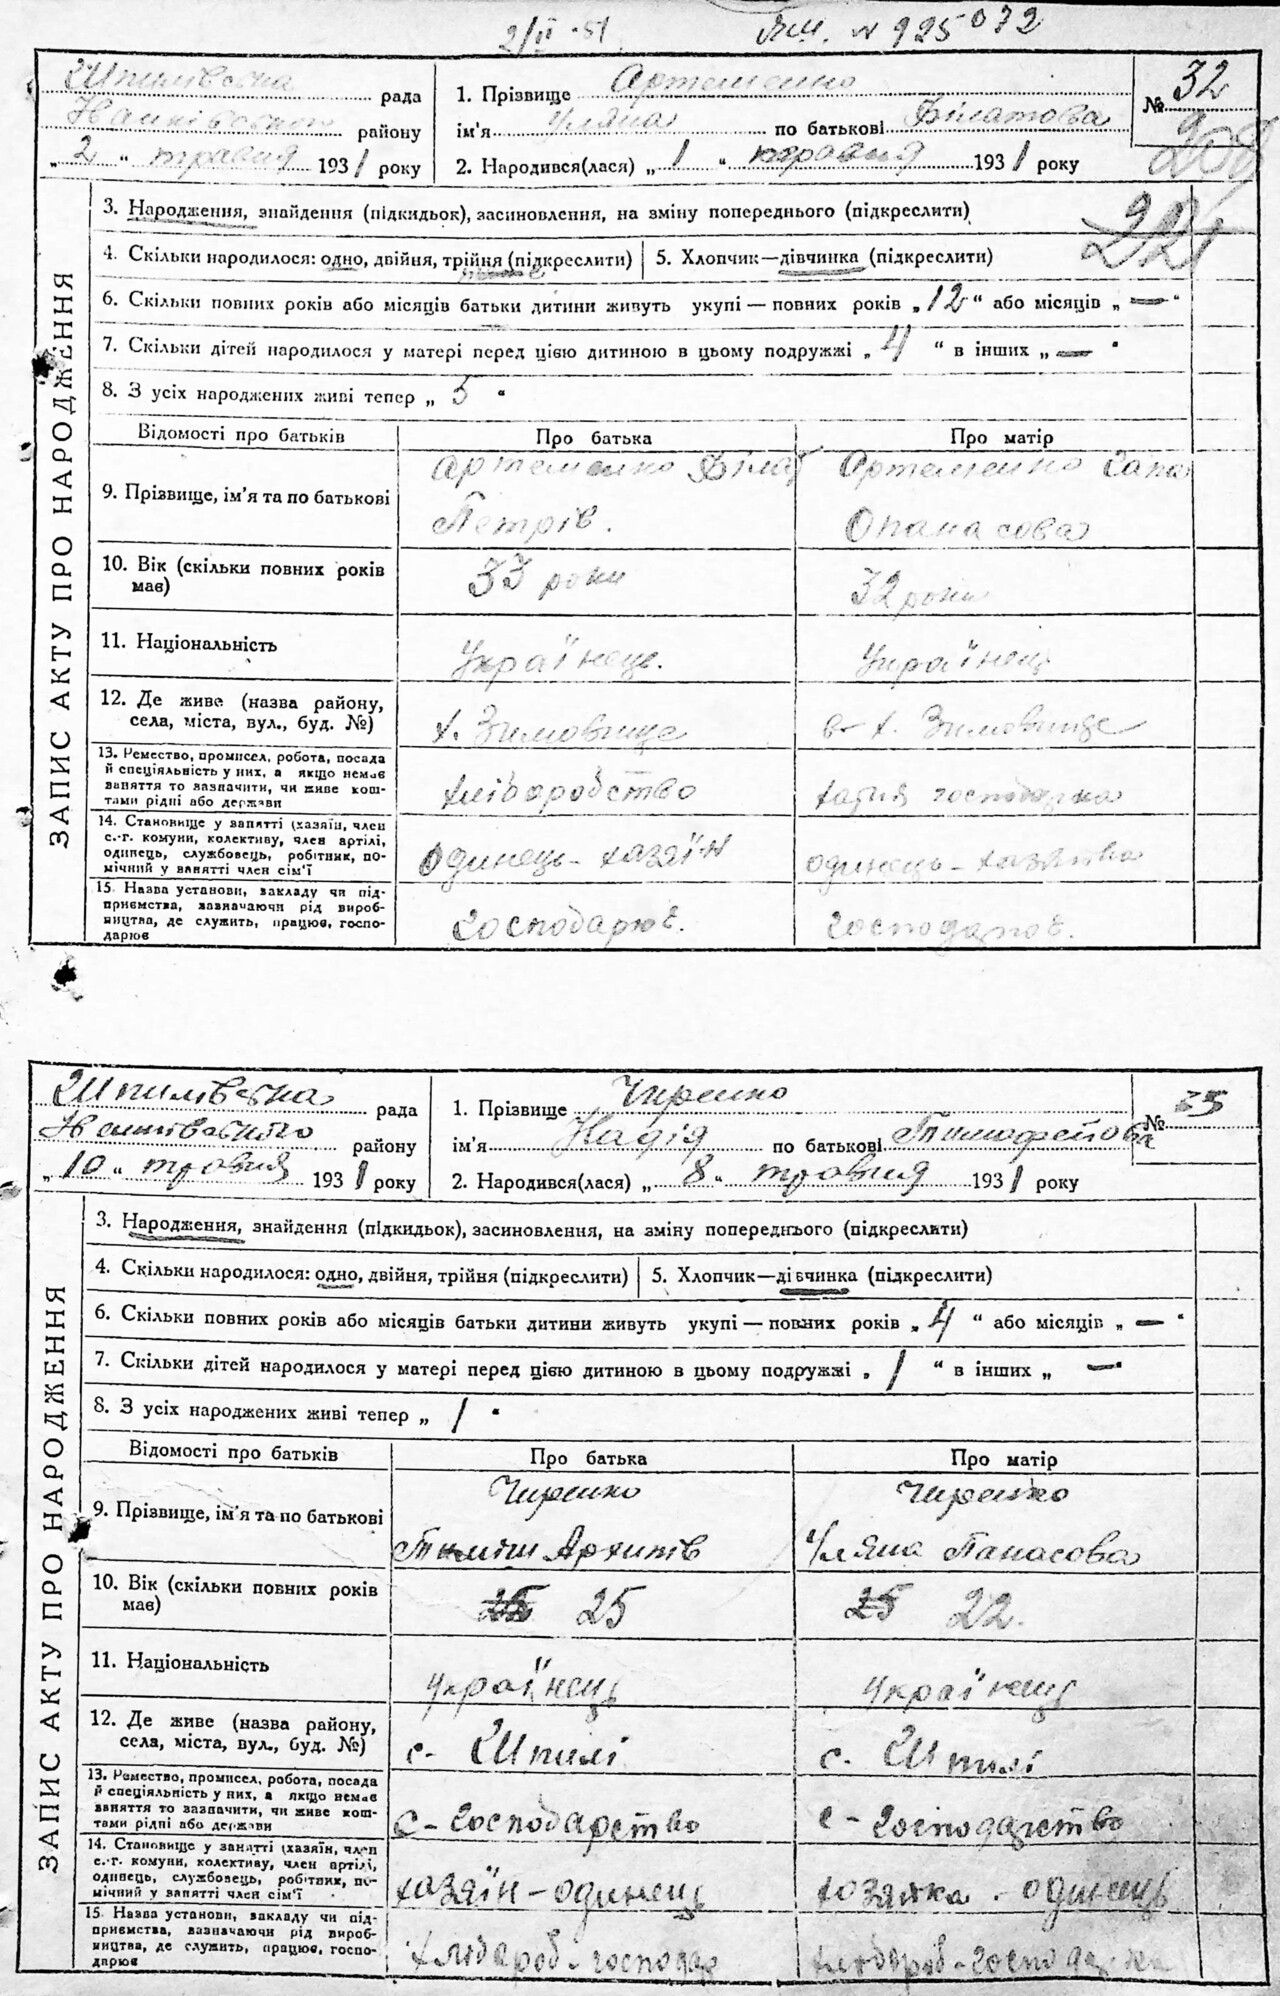 2/II-51. ЯШ. N 925072
Шпилівська рада
Іванківського району
„ 2 “ травня 1931 року
1. Прізвище Артеменко
ім'я Уляна по батькові Філатова
2. Народився(лася) „ 1 “ травня 1931 року
№ 32
ЗАПИС АКТУ ПРО НАРОДЖЕННЯ
3. Народження, знайдення (підкидьок), засиновлення, на зміну попереднього (підкреслити)
4. Скільки народилося: одно, двійня, трійня (підкреслити)
5. Хлопчик—дівчинка (підкреслити)
6. Скільки повних років або місяців батьки дитини живуть укупі — повних років „ 12 “ або місяців „ — “
7. Скільки дітей народилося у матері перед цією дитиною в цьому подружжі „ 4 “ в інших „ — “
8. З усіх народжених живі тепер „ 5 “
Відомості про батьків Про батька Про матір
9. Прізвище, ім'я та по батькові
Артеменко Філат
Петрів.
Артеменко Гапа
Опанасова
10. Вік (скільки повних років має)
33 роки
32 роки
11. Національність
Українець.
Українец
12. Де живе (назва району,
села, міста, вул., буд. №)
х. Зимовище
х. Зимовище
13. Ремество, промисел, робота, посада
й спеціяльність у них, а якщо немає
заняття то зазначити, чи живе кош-
тами рідні або держави
хліборобство
хатня господарка
14. Становище у занятті (хазяїн, член
с.-г. комуни, колективу, член артілі,
одинець, службовець, робітник, по-
мічний у занятті член сім'ї
одинець - хазяїн
одинець - хазяйка
15. Назва установи, закладу чи під-
приємства, зазначаючи рід вироб-
ництва, де служить, працює, госпо-
дарює
Господарює.
Господарює.
Шпилівська рада
Іванківського району
„ 10 “ травня 1931 року
1. Прізвище Чиренко
ім'я Надія по батькові Тимофейова
2. Народився(лася) „ 8 “ травня 1931 року
№ 35
ЗАПИС АКТУ ПРО НАРОДЖЕННЯ
3. Народження, знайдення (підкидьок), засиновлення, на зміну попереднього (підкреслити)
4. Скільки народилося: одно, двійня, трійня (підкреслити)
5. Хлопчик—дівчинка (підкреслити)
6. Скільки повних років або місяців батьки дитини живуть укупі — повних років „ 4 “ або місяців „ — “
7. Скільки дітей народилося у матері перед цією дитиною в цьому подружжі „ 1 “ в інших „ — “
8. З усіх народжених живі тепер „ 1 “
Відомості про батьків Про батька Про матір
9. Прізвище, ім'я та по батькові
Чиренко
Тиміш Архипів
Чиренко
Уляна Панасова
10. Вік (скільки повних років має)
25
25 22.
11. Національність
українець
українець
12. Де живе (назва району,
села, міста, вул., буд. №)
с. Шпилі
с. Шпилі
13. Ремество, промисел, робота, посада
й спеціяльність у них, а якщо немає
заняття то зазначити, чи живе кош-
тами рідні або держави
с-господарство
с-господарство
14. Становище у занятті (хазяїн, член
с.-г. комуни, колективу, член артілі,
одинець, службовець, робітник, по-
мічний у занятті член сім'ї
хазяїн - одинець
хозяйка - одинець
15. Назва установи, закладу чи під-
приємства, зазначаючи рід вироб-
ництва, де служить, працює, госпо-
дарює
хлібороб - господар
хлібороб - господарка